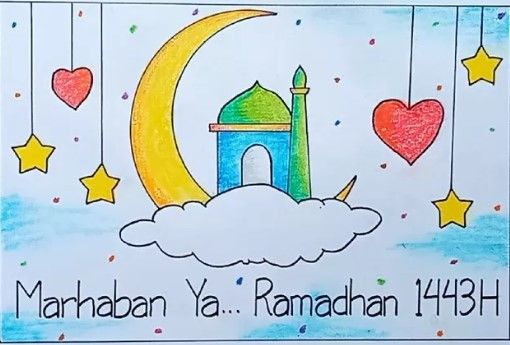 Marhaban Ya... Ramadhan 1443H